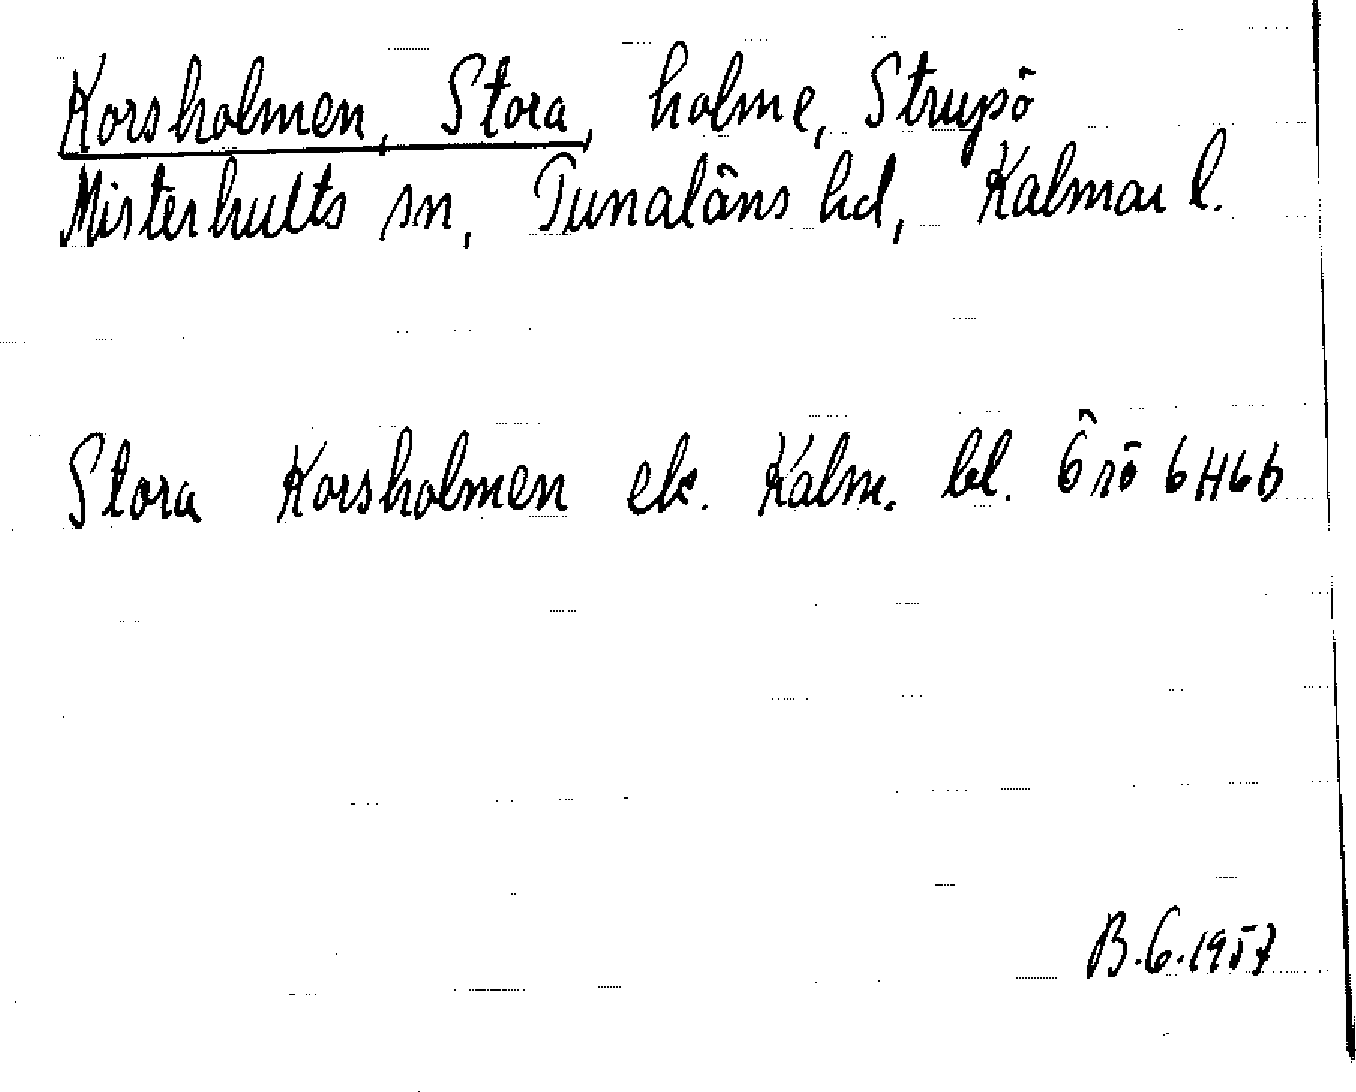 Korsholmen, Stora, holme, Strupö
Misterhults sn, Tunaläns hd, Kalmar l.
Stora Korsholmen ek. Kalm. bl. Örö 6H6b
B.G.1957